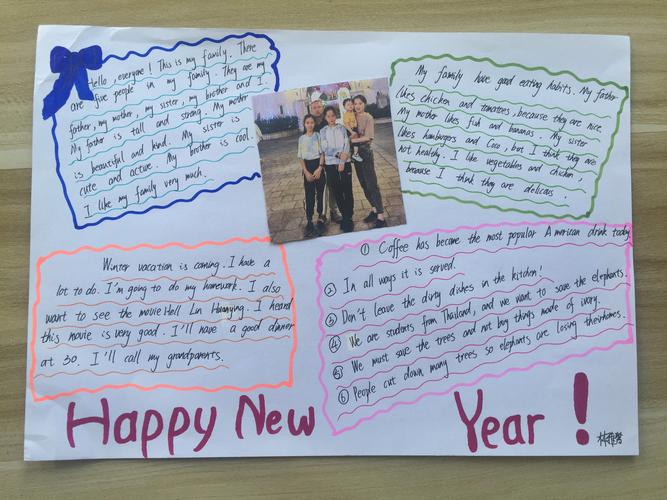 Hello, everyone! This is my family. There
are five people in my family. They are my
father, my mother, my sister, my brother and I.
My father is tall and strong. My mother
is beautiful and kind. My sister is
cute and actue. My brother is cool.
I like my family very much.
My family have good eating habits. My father
likes chicken and tomatoes, because they are nice.
My mother likes fish and bananas. My sister
likes hamburgers and Coco, but I think they are
not healthy. I like vegetables and chicken,
because I think they are delicoas.
Winter vacation is coming. I have a
lot to do. I'm going to do my homework. I also
want to see the movie Hell Lin Huanying. I heard
this movie is very good. I'll have a good dinner
at 30. I'll call my grandparents.
① Coffee has become the most popular American drink today
② In all ways it is served.
③ Don't leave the dirty dishes in the kitchen!
④ We are students from Thailand, and we want to save the elephants.
⑤ We must save the trees and not buy things made of ivory.
⑥ People cut down many trees so elephants are losing theirhomes.
Happy New Year!